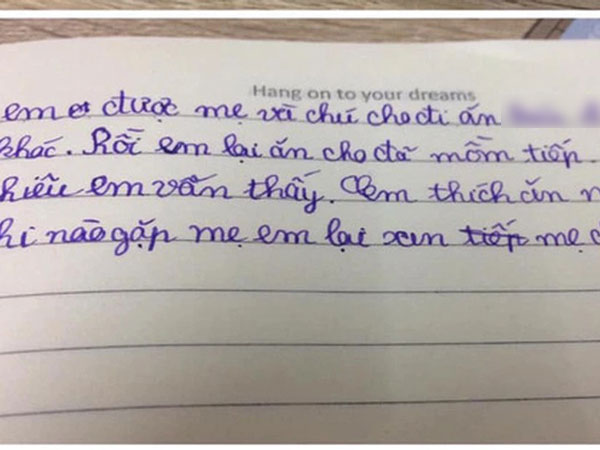 Hang on to your dreams
em được mẹ và chú cho đi ăn
khác. Rồi em lại ăn cho đã mồm tiếp.
hiều em vẫn thấy. Em thích ăn n
hi nào gặp mẹ em lại xin tiếp mẹ